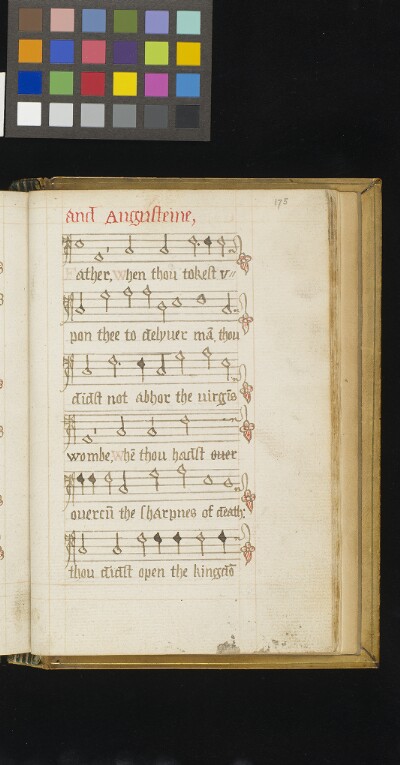 and Augusteine,
178
Father, when thou tokest v=
pon thee to delyuer mā, thou
didst not abhor the uirgīs
wombe, whē thou hadst ouer
ouercū the sharpnes of death:
thou didst open the kingdō